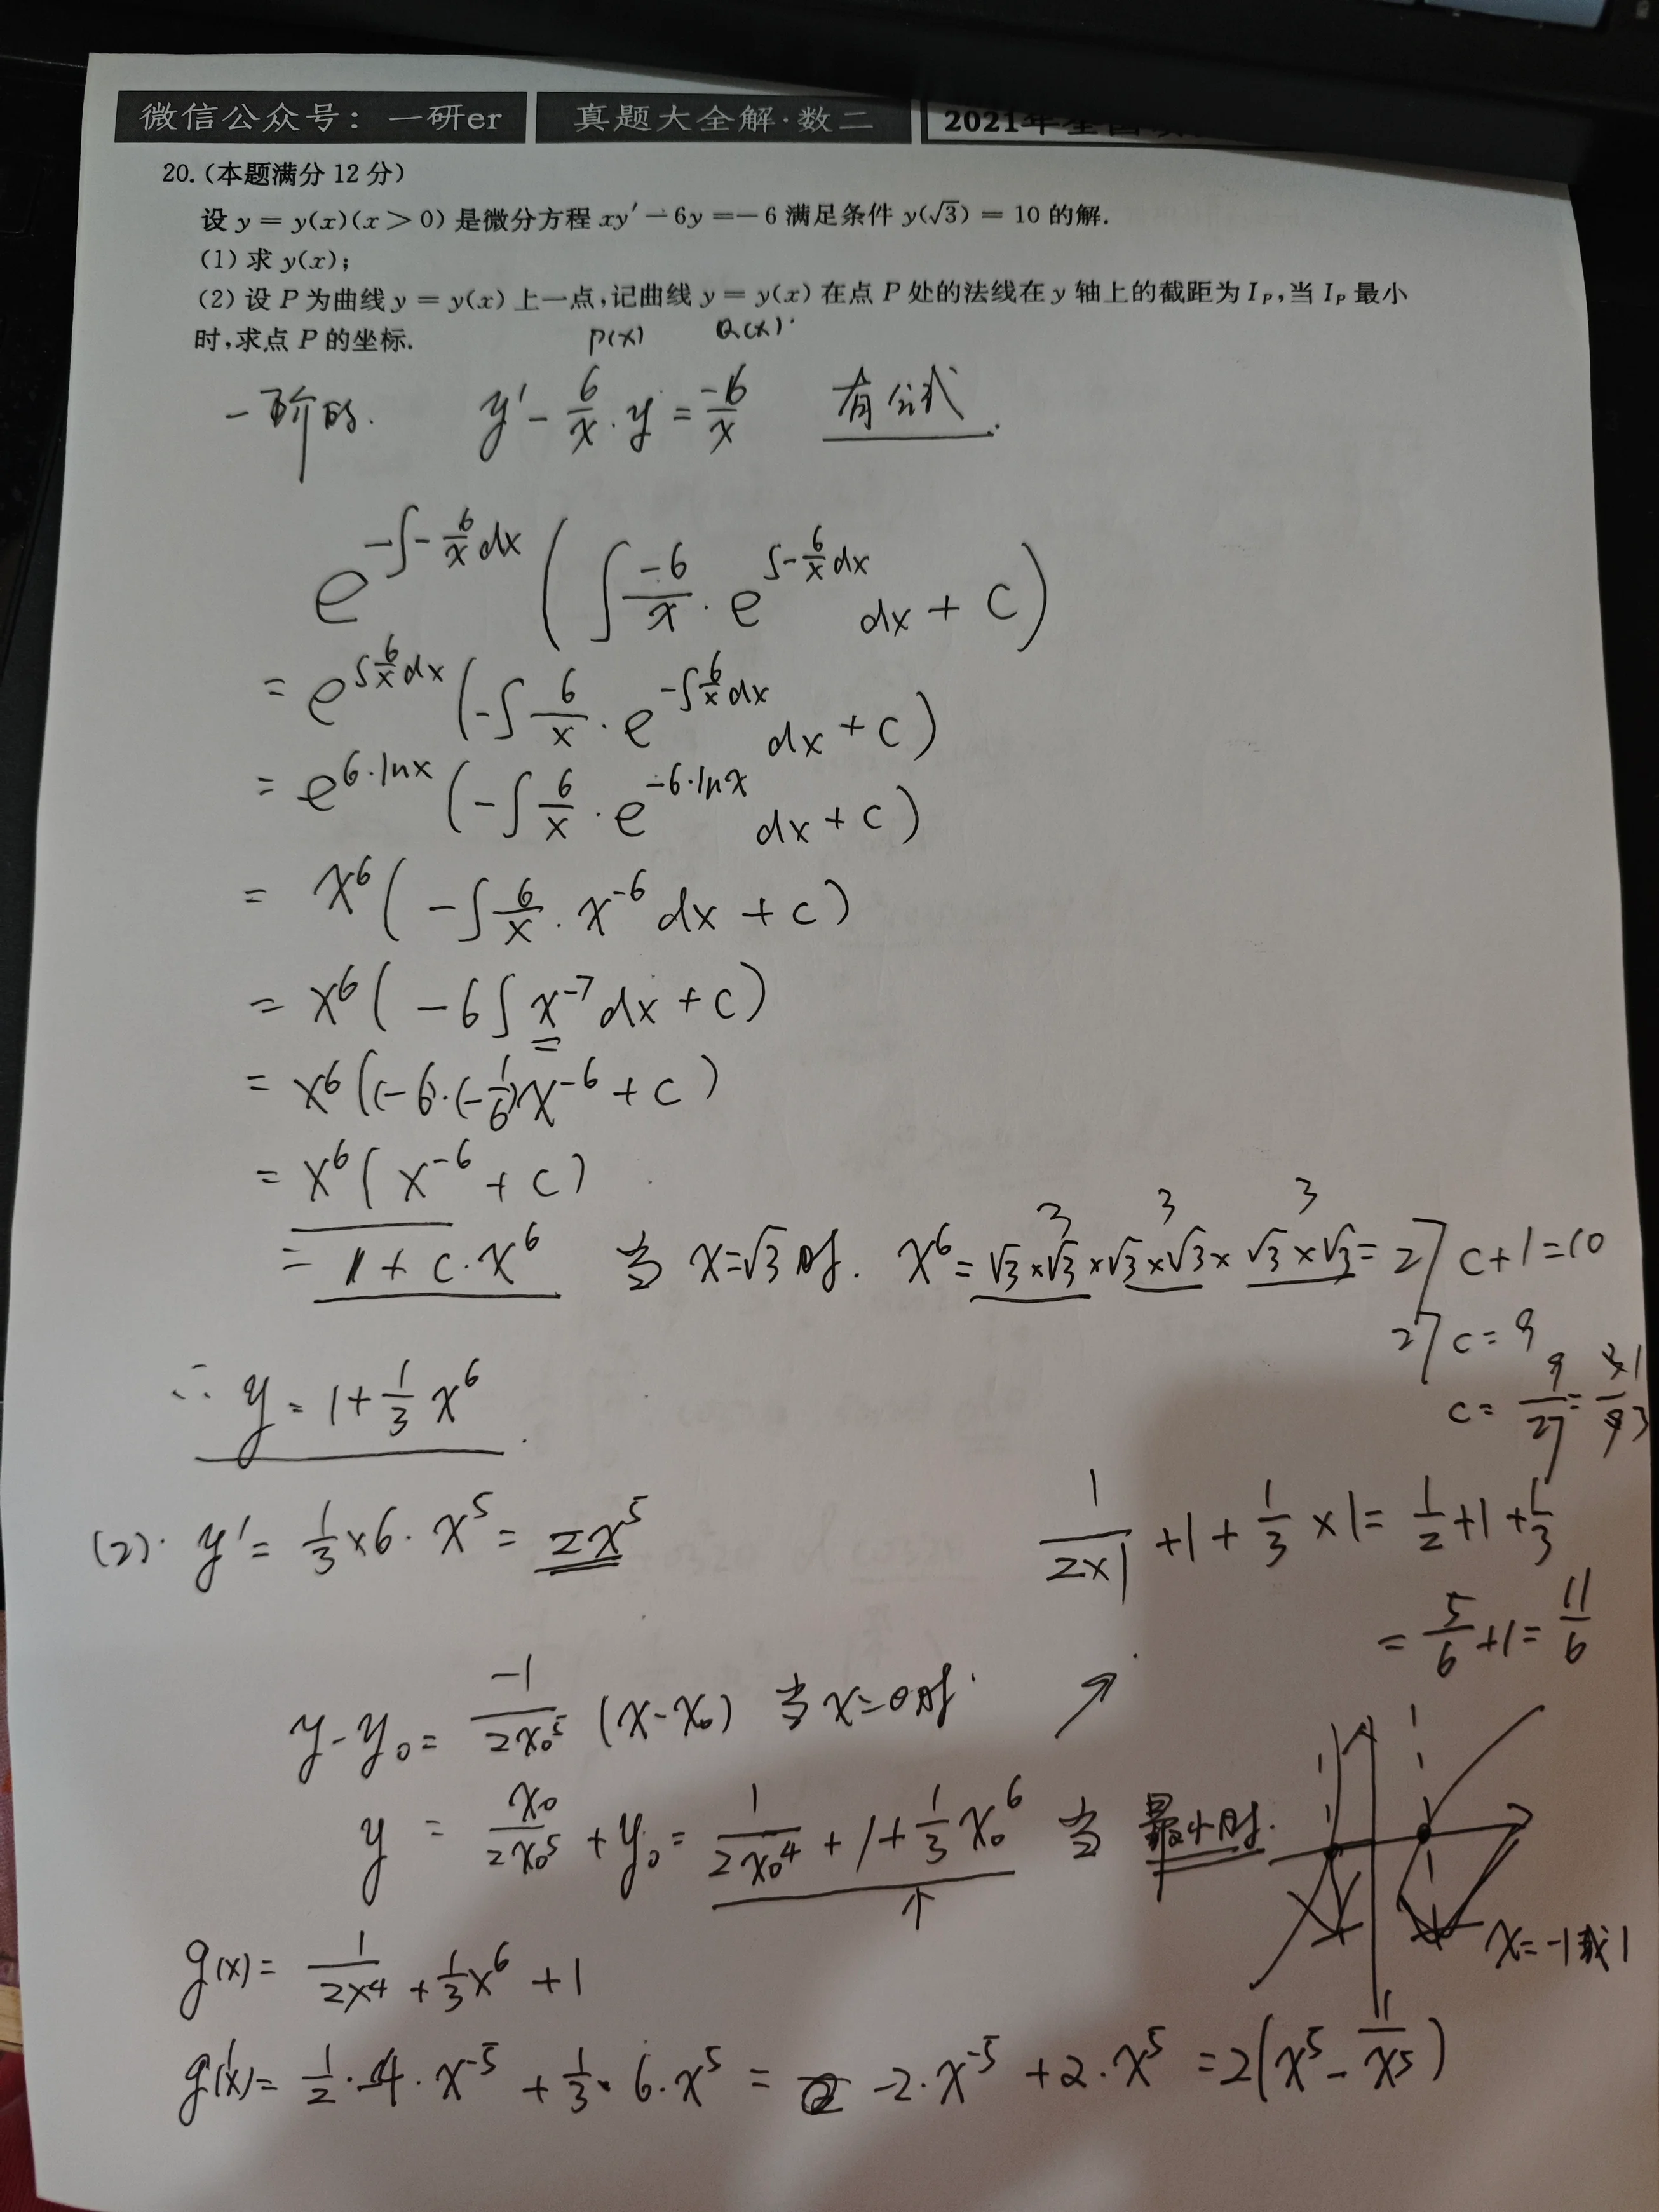 微信公众号：一研er
真题大全解·数二
2021年全国
20.(本题满分 12 分)
设 y = y(x)(x > 0) 是微分方程 xy′ − 6y = − 6 满足条件 y(√3) = 10 的解.
(1) 求 y(x);
(2) 设 P 为曲线 y = y(x) 上一点,记曲线 y = y(x) 在点 P 处的法线在 y 轴上的截距为 I_P,当 I_P 最小
时,求点 P 的坐标.
P(x) Q(x)
一阶的. y′ − 6/x · y = −6/x 有公式.
e^(−∫−6/x dx) (∫ −6/x · e^(∫−6/x dx) dx + C)
= e^(∫6/x dx) (−∫ 6/x · e^(−∫6/x dx) dx + C)
= e^(6·lnx) (−∫ 6/x · e^(−6·lnx) dx + C)
= x^6 (−∫ 6/x · x^−6 dx + C)
= x^6 (−6∫ x^−7 dx + C)
= x^6 ((−6)·(−1/6)x^−6 + C)
= x^6 (x^−6 + C)
= 1 + C·x^6 当 x=√3 时. x^6 = √3×√3×√3×√3×√3×√3 = 27 C+1=10
3 3 3
27C = 9
C = 9/27 = 1/3
∴ y = 1 + 1/3 x^6
(2). y′ = 1/3 × 6 · x^5 = 2x^5
1/(2×1) + 1 + 1/3 × 1 = 1/2 + 1 + 1/3
= 5/6 + 1 = 11/6
y − y₀ = −1/(2x₀^5) (x − x₀) 当 x=0时.
y = x₀/(2x₀^5) + y₀ = 1/(2x₀^4) + 1 + 1/3 x₀^6 当 最小时.
x=−1或1
g(x) = 1/(2x^4) + 1/3 x^6 + 1
g′(x) = 1/2 · −4 · x^−5 + 1/3 · 6 · x^5 = −2·x^−5 + 2·x^5 = 2(x^5 − 1/x^5)